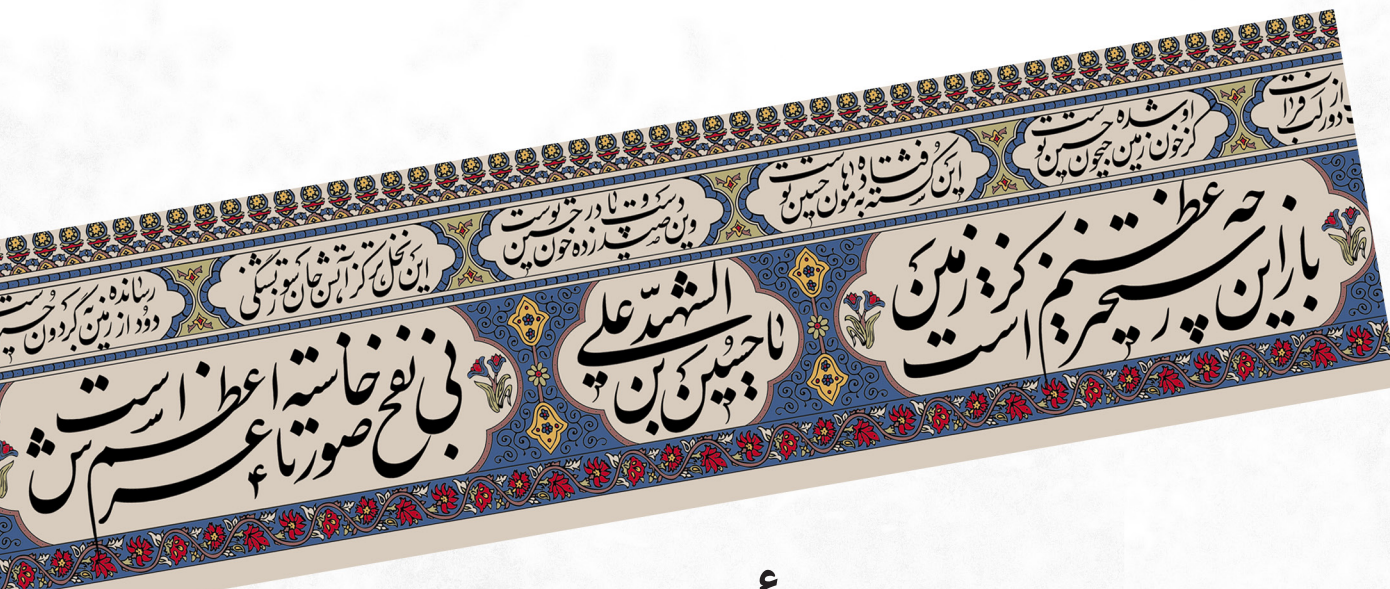 دور از لب فرات
کز خون او زمین شده جیحون حسین توست
این کشته فتاده به هامون حسین توست
وین صید دست و پا زده در خون حسین توست
این نخل تر کز آتش جان سوز تشنگی
دود از زمین رسانده به گردون حسین
باز این چه رستخیز عظیم است کز زمین
یا حسین بن علی الشهید
بی نفخ صور خاسته تا عرش اعظم است